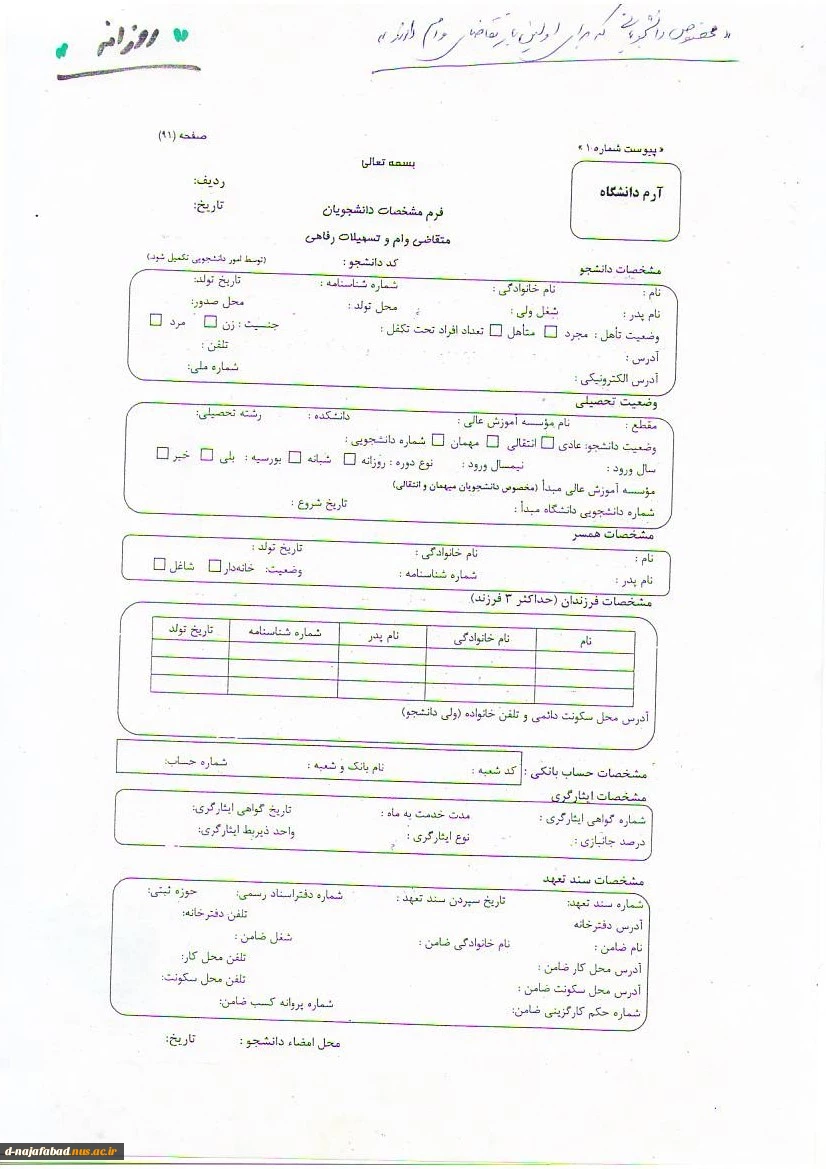 « مخصوص دانشجویانی که برای اولین بار تقاضای وام دارند »
" روزانه "
صفحه (۹۱)
« پیوست شماره ۱ »
بسمه تعالی
آرم دانشگاه
ردیف:
تاریخ:
فرم مشخصات دانشجویان
متقاضی وام و تسهیلات رفاهی
کد دانشجو : (توسط امور دانشجویی تکمیل شود)
مشخصات دانشجو
نام : نام خانوادگی : شماره شناسنامه : تاریخ تولد:
نام پدر : شغل ولی : محل تولد : محل صدور:
وضعیت تأهل : مجرد متأهل تعداد افراد تحت تکفل : جنسیت : زن مرد
آدرس : تلفن :
آدرس الکترونیکی : شماره ملی:
وضعیت تحصیلی
مقطع : نام مؤسسه آموزش عالی : دانشکده : رشته تحصیلی:
وضعیت دانشجو: عادی انتقالی مهمان شماره دانشجویی :
سال ورود : نیمسال ورود : نوع دوره : روزانه شبانه بورسیه : بلی خیر
مؤسسه آموزش عالی مبدأ (مخصوص دانشجویان میهمان و انتقالی)
شماره دانشجویی دانشگاه مبدأ : تاریخ شروع :
مشخصات همسر
نام : نام خانوادگی : تاریخ تولد :
نام پدر : شماره شناسنامه : وضعیت: خانه‌دار شاغل
مشخصات فرزندان (حداکثر ۳ فرزند)
نام نام خانوادگی نام پدر شماره شناسنامه تاریخ تولد
آدرس محل سکونت دائمی و تلفن خانواده (ولی دانشجو)
مشخصات حساب بانکی : کد شعبه : نام بانک و شعبه : شماره حساب:
مشخصات ایثارگری
شماره گواهی ایثارگری : مدت خدمت به ماه : تاریخ گواهی ایثارگری:
درصد جانبازی : نوع ایثارگری : واحد ذیربط ایثارگری:
مشخصات سند تعهد
شماره سند تعهد: تاریخ سپردن سند تعهد : شماره دفتراسناد رسمی: حوزه ثبتی:
آدرس دفترخانه تلفن دفترخانه:
نام ضامن : نام خانوادگی ضامن : شغل ضامن :
آدرس محل کار ضامن : تلفن محل کار:
آدرس محل سکونت ضامن : تلفن محل سکونت:
شماره حکم کارگزینی ضامن: شماره پروانه کسب ضامن:
محل امضاء دانشجو : تاریخ:
d-najafabad.nus.ac.ir